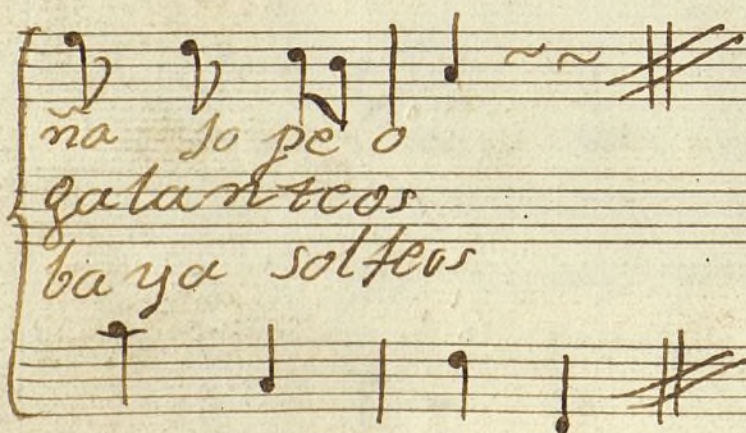 ña so pe o
galanteos
ba ya solfeos